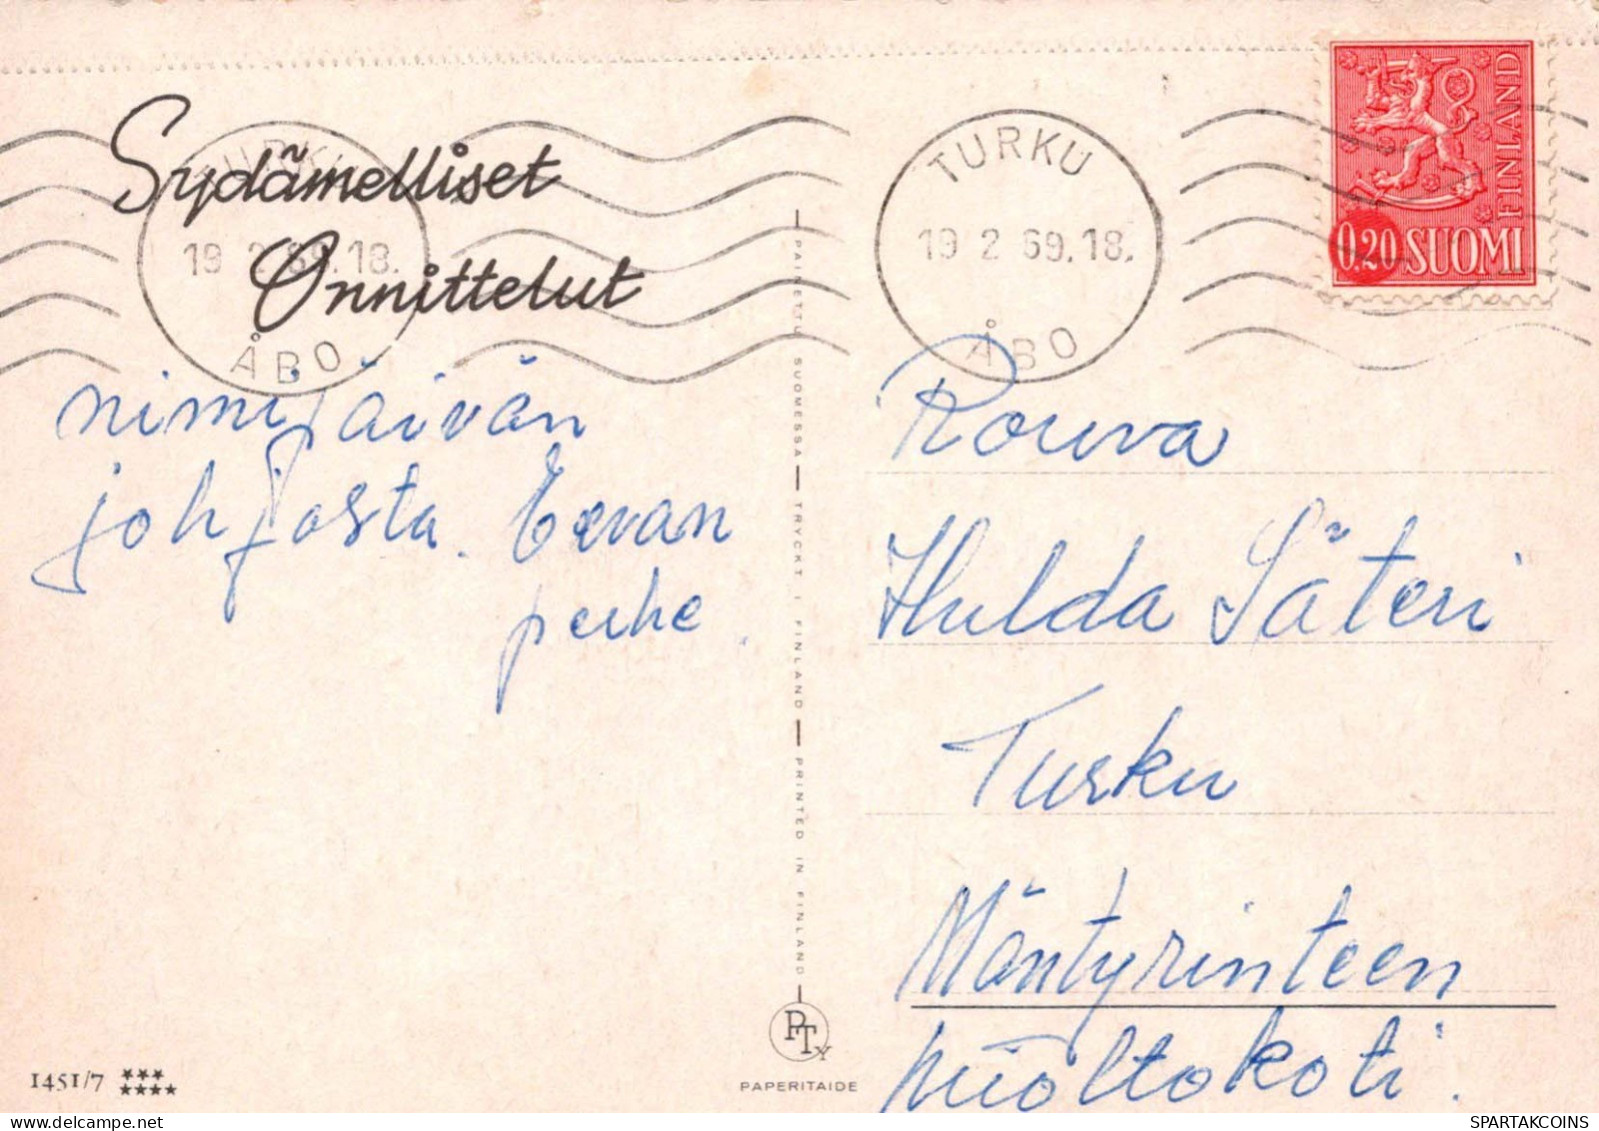 Sydämelliset
Onnittelut
nimipäivän
johdosta. Eevan
perhe.
1451/7
PAINETTU SUOMESSA — TRYCKT I FINLAND — PRINTED IN FINLAND
PTy
PAPERITAIDE
TURKU
19 2 69.18.
ÅBO
TURKU
19 2 69.18.
ÅBO
FINLAND
0.20 SUOMI
Rouva
Hulda Säteri
Turku
Mäntyrinteen
huoltokoti.
SPARTAKCOINS